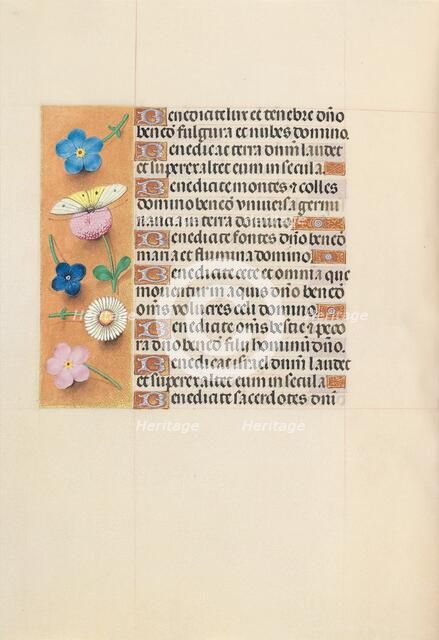 Benedicite lux et tenebre dño
benedꝭ fulgura et nubes domino.
Benedicat terra dñm laudet
et superexaltet eum in secula.
Benedicite montes ⁊ colles
domino benedꝭ universa germi
nancia in terra domino.
Benedicite fontes dño benedꝭ
maria et flumina domino
Benedicite cete et omnia que
moventur in aquis dño benedꝭ
oms volucres celi domino
Benedicite oms bestie ⁊ peco
ra dño benedꝭ filij hominũ dño.
Benedicat israel dñm laudet
et superexaltet eum in secula
Benedicite sacerdotes dñi
Heritage Heritage Heritage
Heritage Heritage